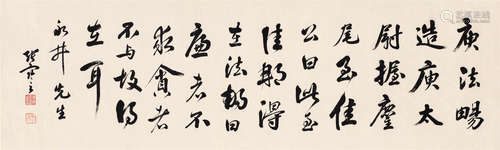 庾法暢
造庾太
尉握麈
尾至佳
公曰此至
佳那得
在法暢曰
廉者不
求貪者
不與故得
在耳
永井先生